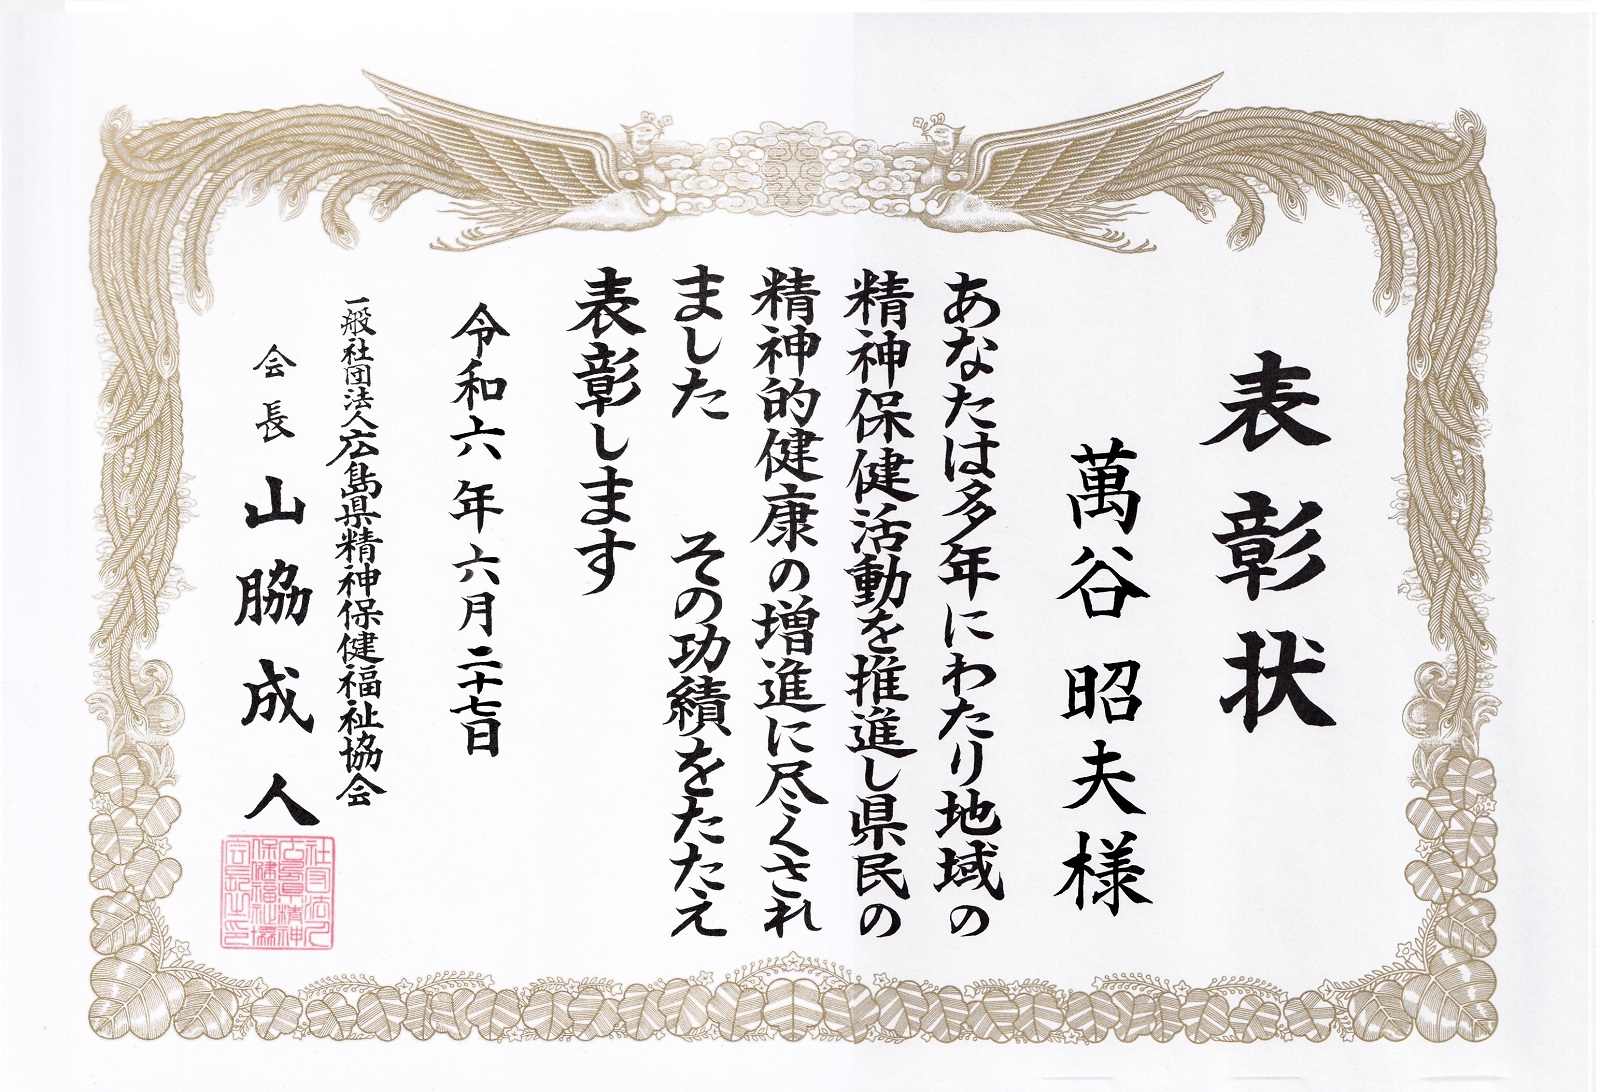 表彰状
萬谷昭夫様
あなたは多年にわたり地域の
精神保健活動を推進し県民の
精神的健康の増進に尽くされ
ました　その功績をたたえ
表彰します
令和六年六月二十七日
一般社団法人広島県精神保健福祉協会
会長 山脇成人
社団法人
広島県精神
保健福祉協
会長之印